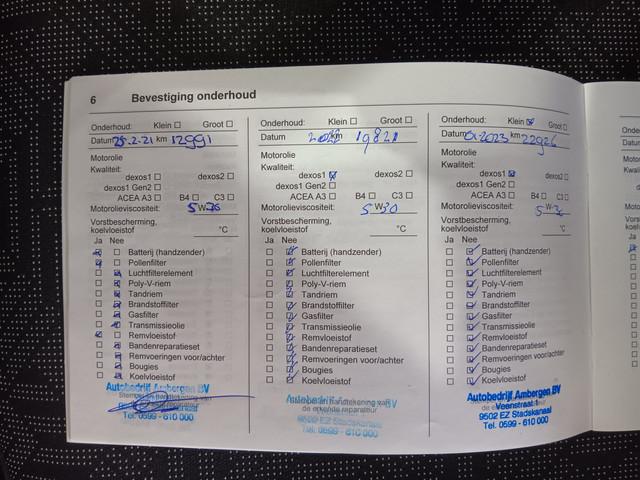 6 Bevestiging onderhoud
Onderhoud: Klein ☐ Groot ☐
Datum 25-2-21 km 12991
Motorolie
Kwaliteit:
dexos1 ☐ dexos2 ☐
dexos1 Gen2 ☐
ACEA A3 ☐ B4 ☐ C3 ☐
Motorolieviscositeit: 5 W 30
Vorstbescherming,
koelvloeistof °C
Ja Nee
Batterij (handzender)
Pollenfilter
Luchtfilterelement
Poly-V-riem
Tandriem
Brandstoffilter
Gasfilter
Transmissieolie
Remvloeistof
Bandenreparatieset
Remvoeringen voor/achter
Bougies
Koelvloeistof
Autobedrijf Ambergen BV
Stempel en handtekening van
Tel. 0599 - 610 000
Onderhoud: Klein ☐ Groot ☐
Datum km 19821
Motorolie
Kwaliteit:
dexos1 ☑ dexos2 ☐
dexos1 Gen2 ☐
ACEA A3 ☐ B4 ☐ C3 ☐
Motorolieviscositeit: 5 W 30
Vorstbescherming,
koelvloeistof °C
Ja Nee
Batterij (handzender)
Pollenfilter
Luchtfilterelement
Poly-V-riem
Tandriem
Brandstoffilter
Gasfilter
Transmissieolie
Remvloeistof
Bandenreparatieset
Remvoeringen voor/achter
Bougies
Koelvloeistof
Autobedrijf Ambergen BV
de erkende reparateur
9502 EZ Stadskanaal
Tel. 0599 - 610 000
Onderhoud: Klein ☑ Groot ☐
Datum 01-2023 km 22926
Motorolie
Kwaliteit:
dexos1 ☑ dexos2 ☐
dexos1 Gen2 ☐
ACEA A3 ☐ B4 ☐ C3 ☐
Motorolieviscositeit: 5 W 30
Vorstbescherming,
koelvloeistof °C
Ja Nee
Batterij (handzender)
Pollenfilter
Luchtfilterelement
Poly-V-riem
Tandriem
Brandstoffilter
Gasfilter
Transmissieolie
Remvloeistof
Bandenreparatieset
Remvoeringen voor/achter
Bougies
Koelvloeistof
Autobedrijf Ambergen BV
Veenstraat 1
9502 EZ Stadskanaal
Tel. 0599 - 610 000